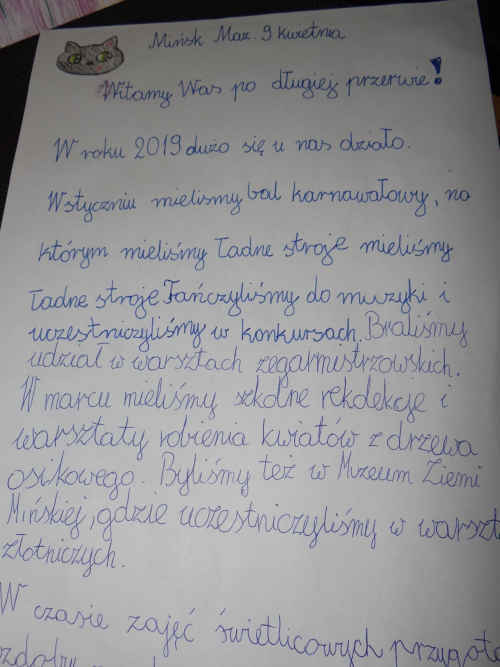 Mińsk Maz. 9 kwietnia
Witamy Was po długiej przerwie!
W roku 2019 dużo się u nas działo.
W styczniu mielismy bal karnawałowy, na
którym mieliśmy ładne stroje mieliśmy
ładne stroje Tańczyliśmy do muzyki i
uczestniczyliśmy w konkursach. Braliśmy
udział w warsztach zegarmistrzowskich.
W marcu mieliśmy szkolne rekdekcje i
warsztaty robienia kwiatów z drzewa
osikowego. Byliśmy też w Muzeum Ziemi
Mińskiej, gdzie uczestniczyliśmy w warszt
złotniczych.
W czasie zajęć świetlicowych przygoto
ozdoby